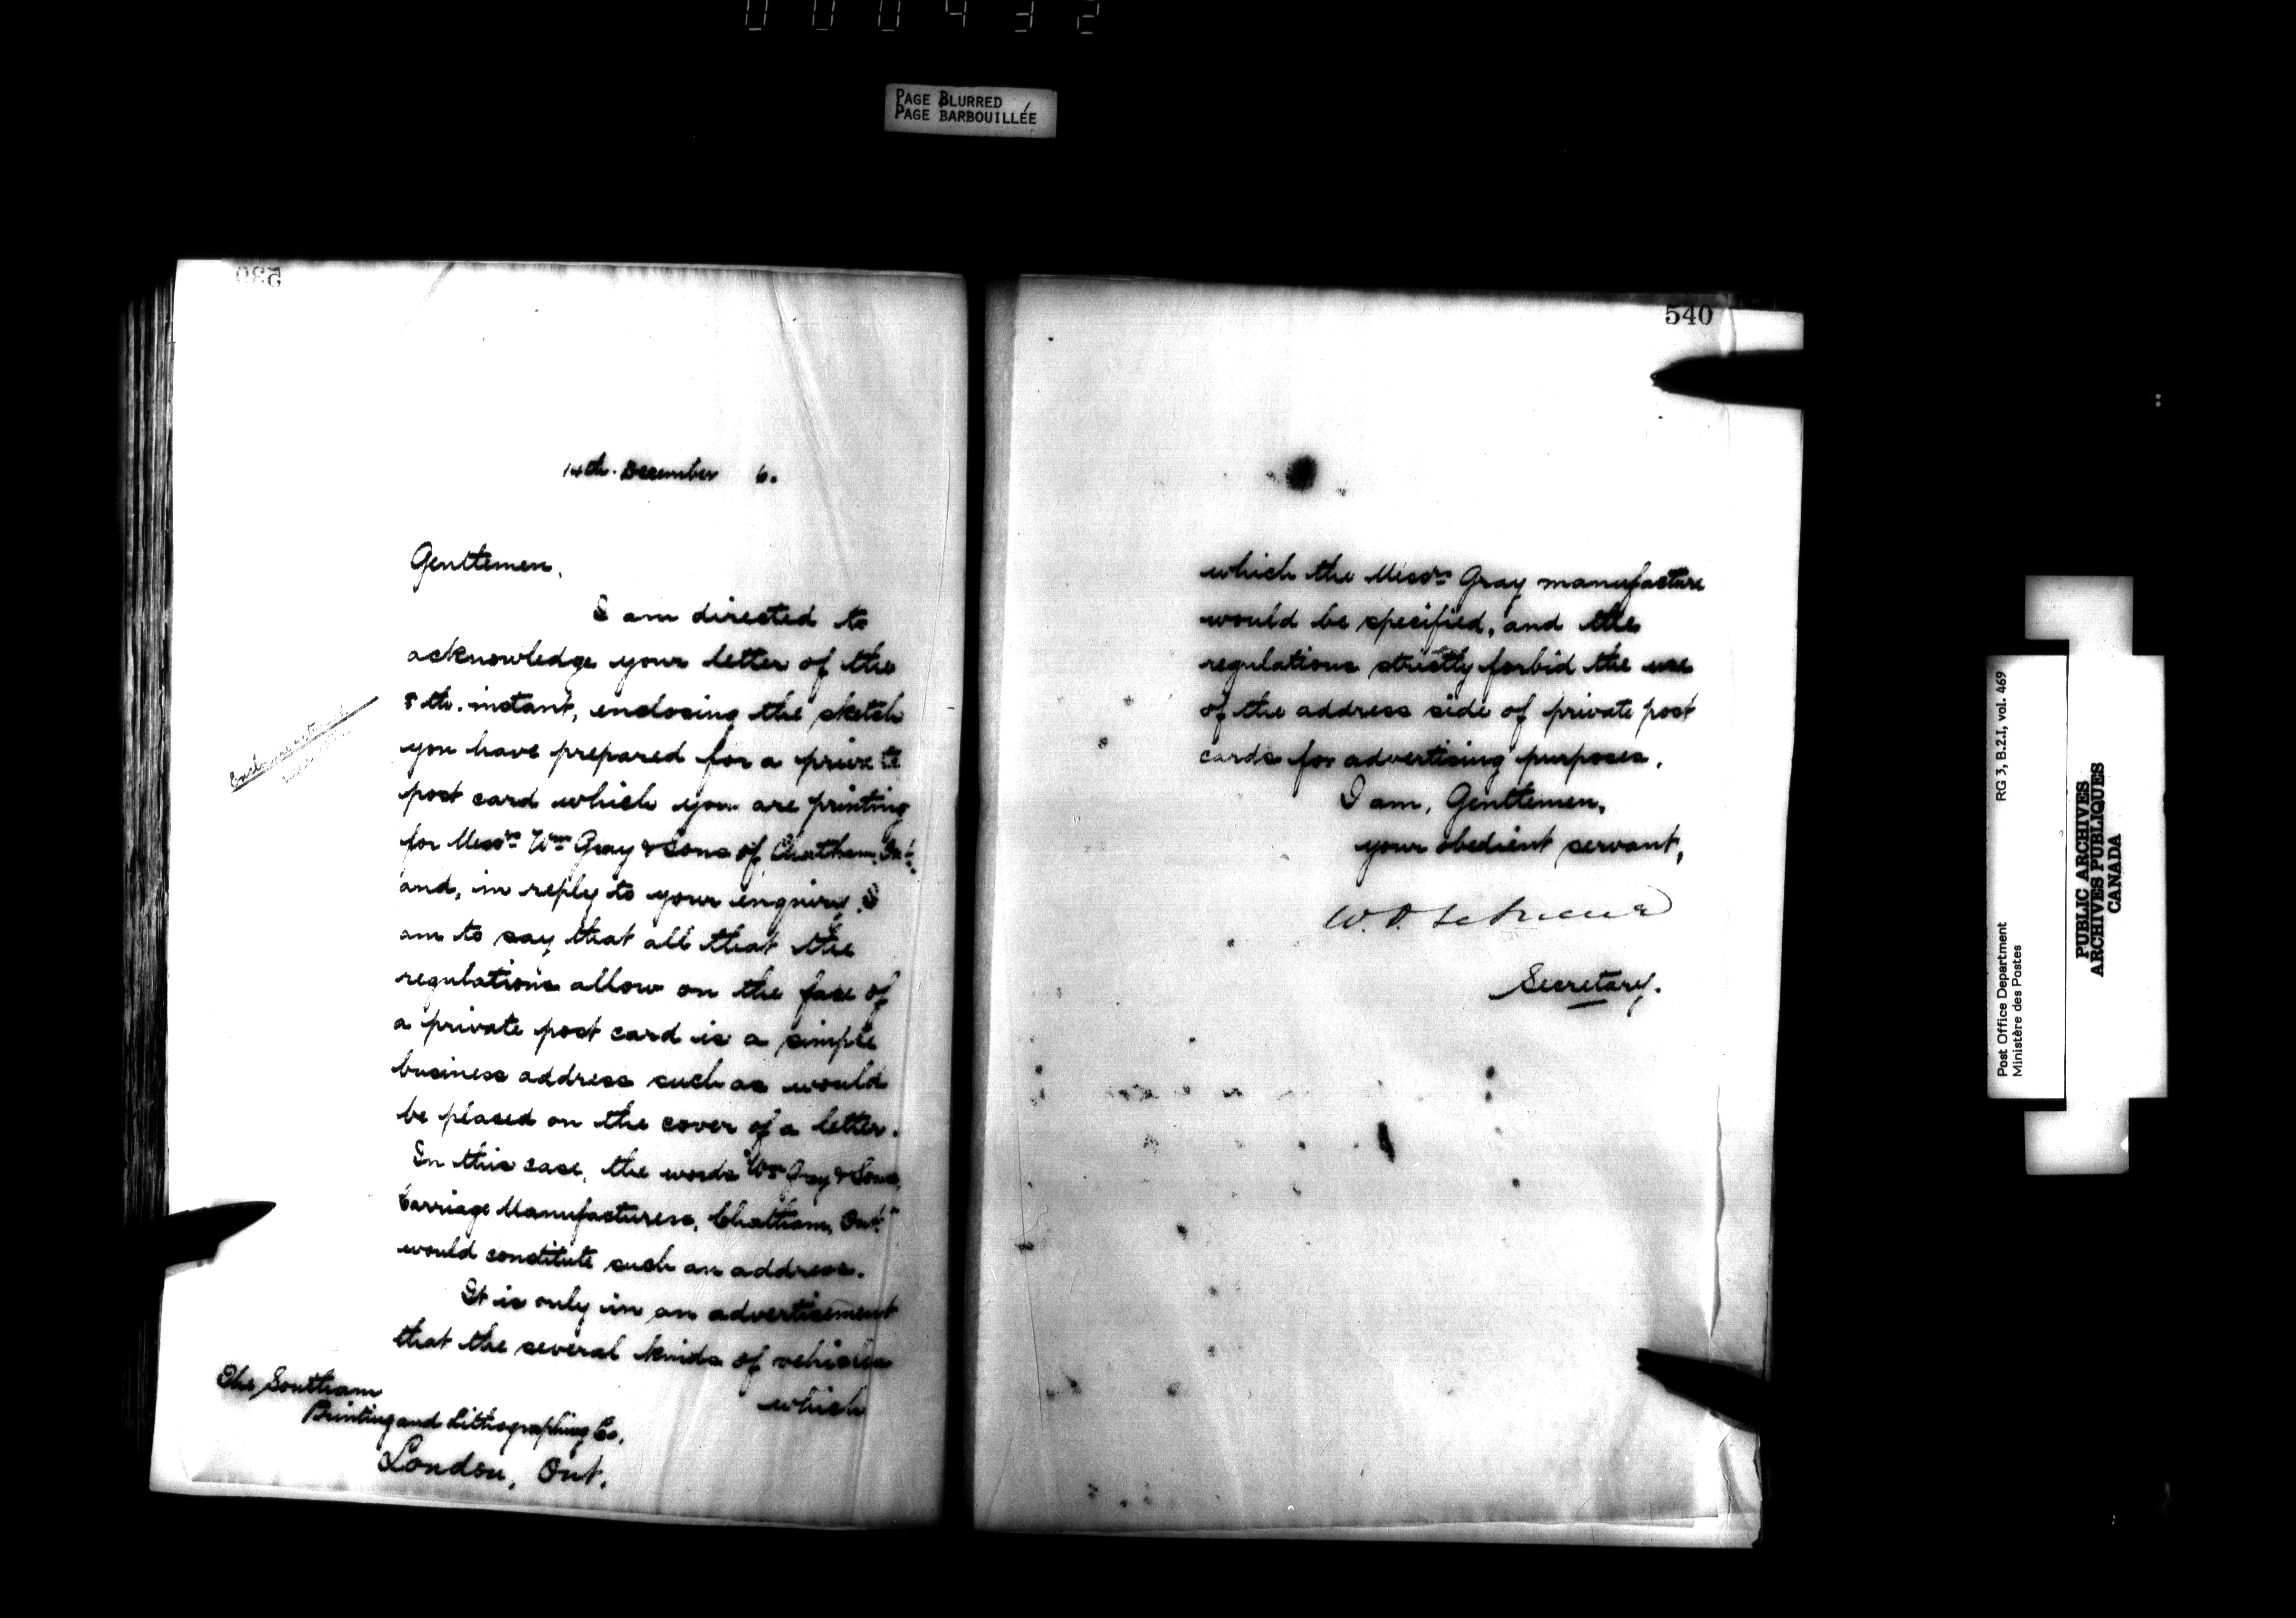 000432
PAGE BLURRED
PAGE BARBOUILLÉE
539
14th. December 6.
Gentlemen,
I am directed to
acknowledge your letter of the
8th. instant, enclosing the sketch
you have prepared for a private
post card which you are printing
for Messrs Wm Gray & Sons of Chatham, Ont.,
and, in reply to your enquiry, I
am to say that all that the
regulations allow on the face of
a private post card is a simple
business address such as would
be placed on the cover of a letter.
In this case, the words "Wm Gray & Sons,
Carriage Manufacturers, Chatham, Ont."
would constitute such an address.
It is only in an advertisement
that the several kinds of vehicles
which
The Southam
Printing and Lithographing Co.
London, Ont.
540
which the Messrs Gray manufacture
would be specified, and the
regulations strictly forbid the use
of the address side of private post
cards for advertising purposes.
I am, Gentlemen,
your obedient servant,
W.D.
Secretary.
Post Office Department
Ministère des Postes
RG 3, B.2.I, vol. 469
PUBLIC ARCHIVES
ARCHIVES PUBLIQUES
CANADA